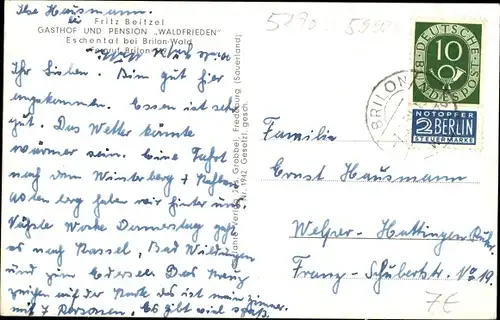 Ilse Hausmann.
bei
Fritz Beitzel
GASTHOF UND PENSION „WALDFRIEDEN“
Eschental bei Brilon-Wald
Brilon
Ihr Lieben. Bin gut hier
angekommen. Essen ist sehr
gut. Das Wetter könnte
wärmer sein. Eine Fahrt
nach dem Winterberg + Kahler
Astenberg haben wir hinter uns.
Nächste Woche Donnerstag geht
es nach Kassel, Bad Wildungen
und zum Edersee. Das Kreuz
auf der Karte das ist mein Zimmer.
mit 7 Personen. Es gibt viel Spaß.
Verlag Jos. Grobbel, Fredeburg (Sauerland)
Nr. 1942 Gesetzl. gesch.
5290
DEUTSCHE
BUNDESPOST
10
NOTOPFER
2 BERLIN
STEUERMARKE
BRILON
Familie
Ernst Hausmann
Welper-Hattingen Ruhr.
Franz-Schubertstr. No 19.
7€